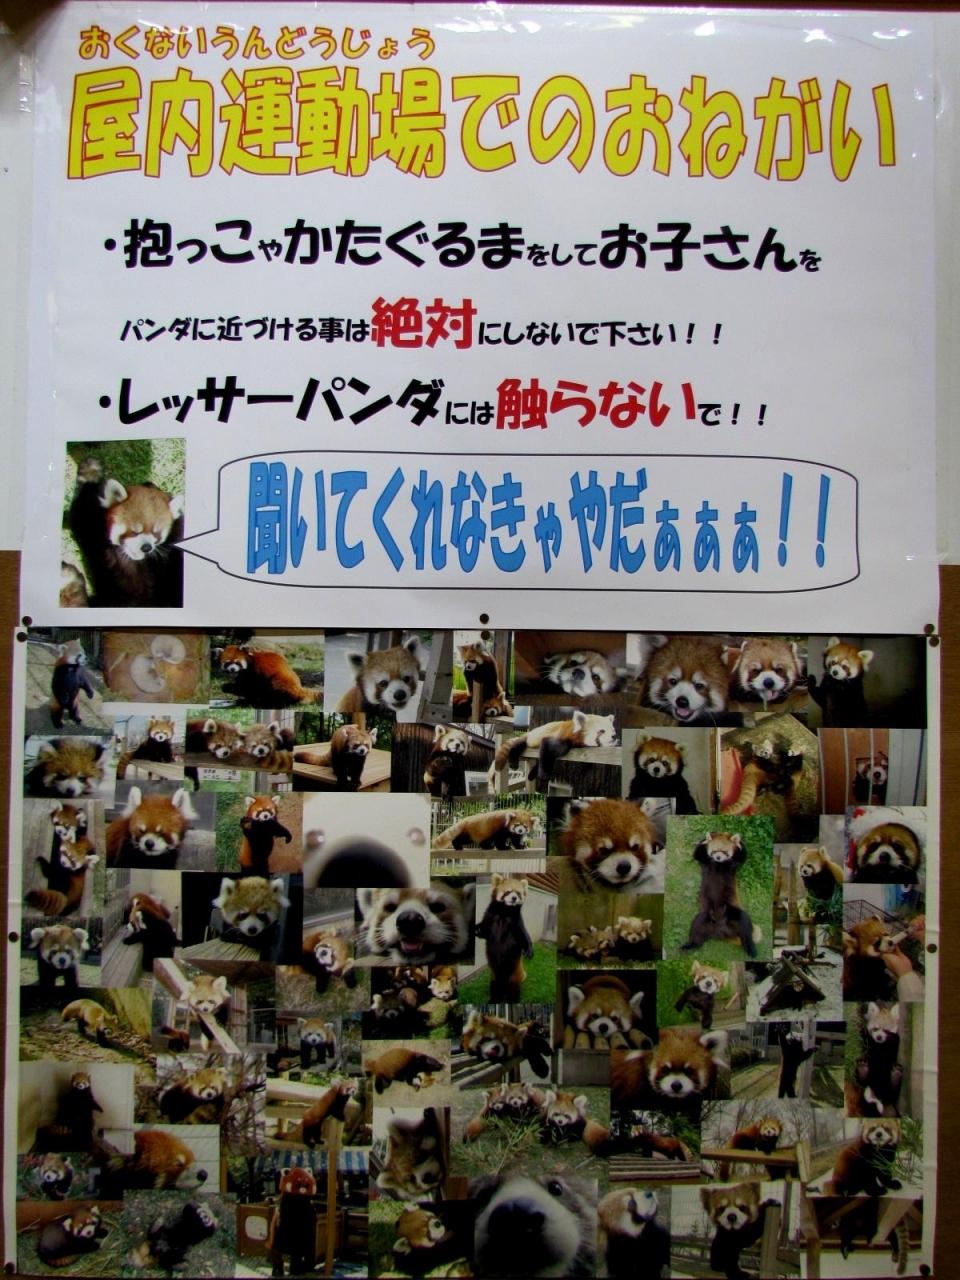 おくないうんどうじょう
屋内運動場でのおねがい
・抱っこやかたぐるまをしてお子さんを
パンダに近づける事は絶対にしないで下さい！！
・レッサーパンダには触らないで！！
聞いてくれなきゃやだぁぁぁ！！